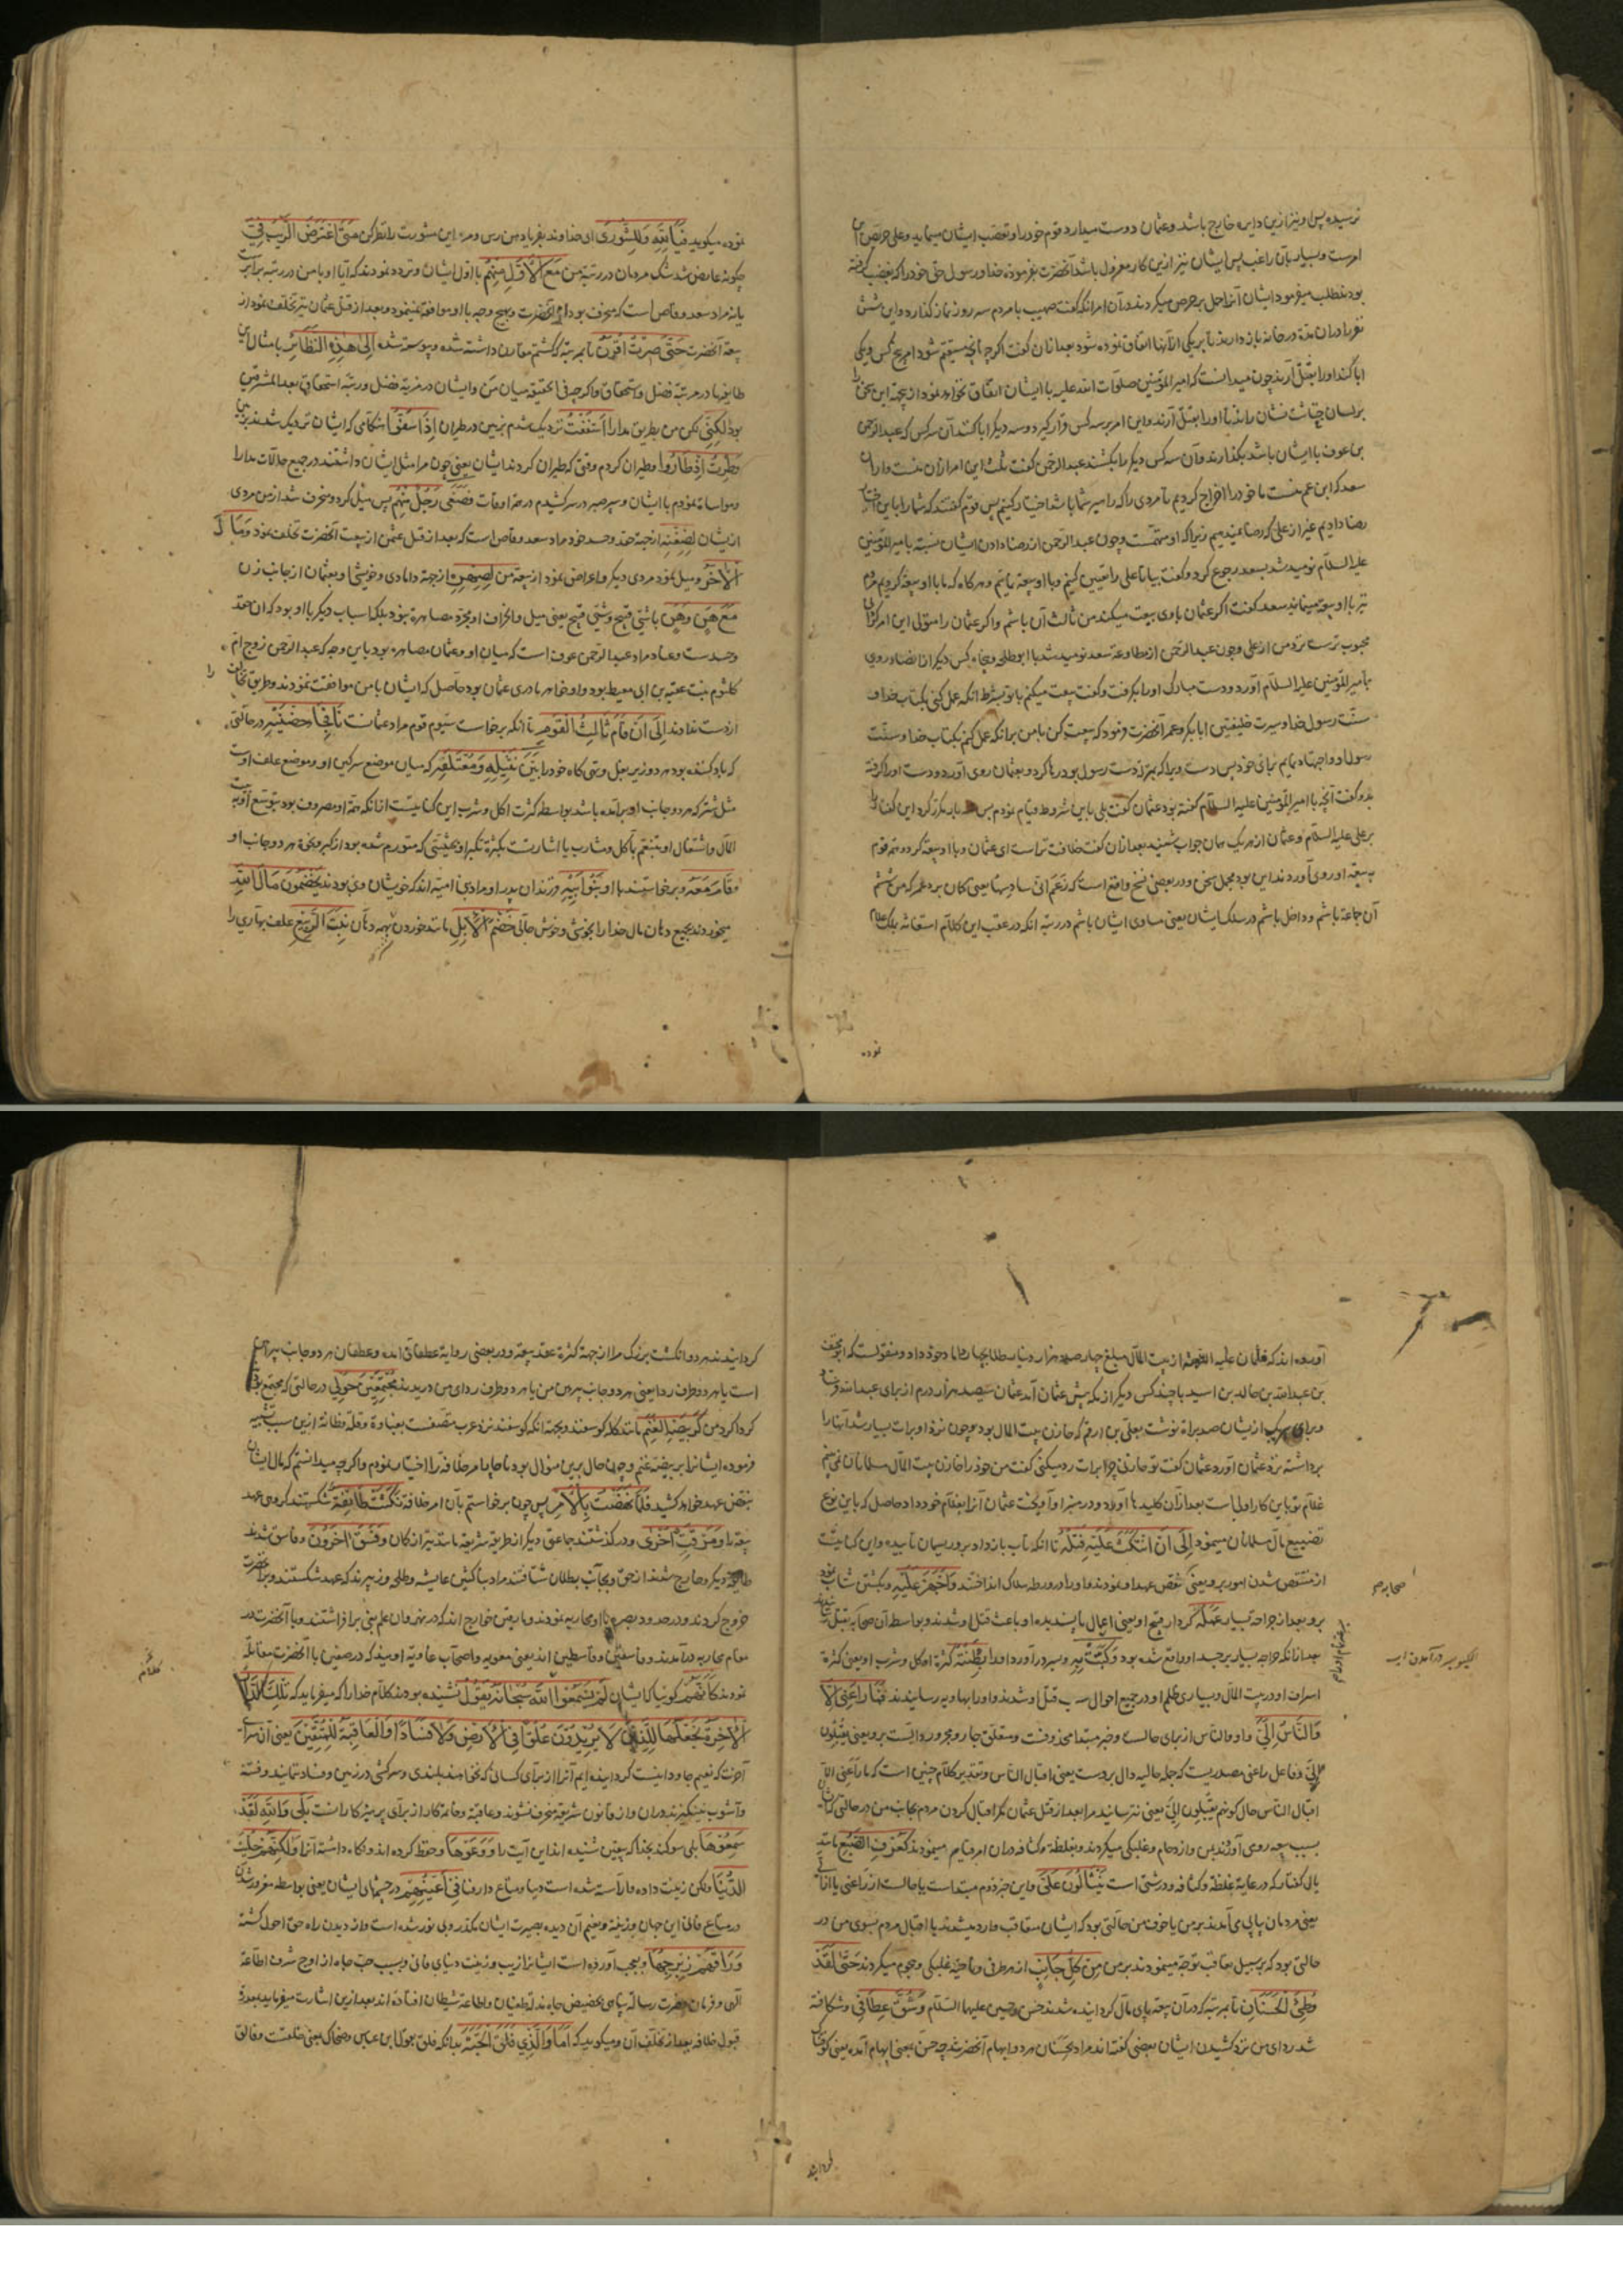 نرسیده پس او نیز ازین دایره خارج باشد و عثمان دوست میدارد قوم خود را و تعصب ایشان مینماید و علی حریص این
امرست و بسیار بآن راغب پس ایشان نیز ازین کار معزول باشد آنحضرت بفرموده خدا و رسول حق خود را که بغصب گرفته
بودند طلب میفرمود ایشان آنرا حمل بر حرص میکردند و آن امر آنکه گفت صهیب با مردم سه روز نماز گذارد و این شش
نفر را در آن مدة در خانه باز دارید تا بر یکی از آنها اتفاق نموده شود بعد از آن گفت اگر پنج مستقیم شود امر پنج کس و یکی
ابا کند او را بقتل آرند چون میدانست که امیر المؤمنین صلوات الله علیه با ایشان اتفاق نخواهد نمود از جهت این سخن
بر لسان نشان راند تا او را بقتل آرند و این امر بر سه کس قرار گیرد و سه دیگر ابا کند آن سه کس که عبد الرحمن
بن عوف با ایشان باشد بگذارند و آن سه کس دیگر را بکشند عبد الرحمن گفت ثلث این امر از آن منست و از آن
سعد که ابن عم منست ما خود را اخراج کردیم تا مردی را که امیر شما باشد اختیار کنیم پس قوم گفتند که شما را باین اختیار
رضا دادیم غیر از علی که رضا نمیدهیم زیرا که او متهمست و چون عبد الرحمن از رضا دادن ایشان نسبت بامیر المؤمنین
علیه السلام نومید شد بسعد رجوع کرد و گفت بیا تا علی را تعیین کنیم و با او بیعة نمائیم و هر گاه که ما با او بیعة کردیم مردم
نیز با او بیعة مینمایند سعد گفت اگر عثمان با وی بیعت میکند من ثالث آن باشم و اگر عثمان را متولی این امر کردی
محبوب ترست نزد من از علی و چون عبد الرحمن از مطاوعة سعد نومید شد با ابو طلحه و پنجاه کس دیگر از انصار روی
بامیر المؤمنین علیه السلام آورد و دست مبارک او را بگرفت و گفت بیعت میکنم با تو بشرط آنکه عمل کنی بکتاب خدا و
سنت رسول خدا و سیرت خلیفتین ابا بکر و عمر آنحضرت فرمود که بیعت کن با من بر آنکه عمل کنم بکتاب خدا و سنت
رسول او و اجتهاد نمایم برای خود پس دست ویرا که بمنزلت دست رسول بود رها کرد و بعثمان روی آورد و دست او را گرفته
بدو گفت آنچه با امیر المؤمنین علیه السلام گفته بود عثمان گفت بلی باین شروط قیام نمودم پس سه بار مکرر کرد این کفتار را
بر علی علیه السلام و عثمان از هر یک همان جواب شنید بعد از آن گفت خلافت تراست ای عثمان و با او بیعة کرد و همه قوم
به بیعة او روی آوردند این بود مجمل سخن و در بعضی نسخ واقع است که زَعَمَ اَنّی سادسها یعنی گمان برد عمر که من ششم
آن جماعة باشم و داخل باشم در سلک ایشان یعنی مساوی ایشان باشم در رتبه آنکه در عقب این کلام استغاثه بملک علام
نموده
نموده میگوید فَیَا لَلّهِ وَلِلشُّورَى ای خداوند بفریاد من رس و مر این مشورت را نظر کن مَتَى اعْتَرَضَ الرَّیْبُ فِیَّ
چگونه عارض شد شک مردمان در رتبه من مَعَ الْاَوَّلِ مِنْهُم با اول ایشان و تردد نمودند که آیا او با من در رتبه برابرست
یا نه مراد سعد وقاص است که منحرف بود از آنحضرت و بهیچ وجه با او موافقة ننمود و بعد از قتل عثمان نیز تخلف نمود از
بیعة آنحضرت حَتَّى صِرْتُ اُقْرَنُ تا بمرتبه که گشتم مقارن داشته شده و پیوسته شده اِلَى هٰذِهِ النَّظَائِر بامثال این
طایفها در مرتبه فضل و استحقاق و اگر چه فی الحقیقه میان من و ایشان در مزیة فضل و رتبة استحقاق بعد المشرقین
بود لٰکِنّی لکن من بطریق مدارا اَسْفَفْتُ نزدیک شدم بزمین در طیران اِذْ اَسَفُّوا هنگامی که ایشان نزدیک شدند بزمین
وَطِرْتُ اِذْ طَارُوا و طیران کردم وقتی که طیران کردند ایشان یعنی چون مرا مثل ایشان داشتند در جمیع حالات مدارا
و مواساة نمودم با ایشان و سپر صبر در سر کشیدم در همه اوقات فَصَغَى رَجُلٌ مِنْهُم پس میل کرد و منحرف شد از من مردی
از ایشان لِضِغْنِهِ از جهة حقد و حسد خود مراد سعد وقاص است که بعد از قتل عثمن از بیعت آنحضرت تخلف نمود وَمَالَ
الْآخَرُ و میل نمود مردی دیگر و اعراض نمود از بیعة من لِصِهْرِهِ از جهة دامادی و خویشی او بعثمان از جانب زن
مَعَ هَنٍ وَهَنٍ با شئی قبیح و شئی قبیح یعنی میل و انحراف او بمجرد مصاهرة نبود بلکه اسباب دیگر با او بود که آن حقد
و حسدست و عناد مراد عبد الرحمن عوف است که میان او و عثمان مصاهره بود باین وجه که عبد الرحمن زوج ام
کلثوم بنت عقبة بن ابی معیط بود و او خواهر مادری عثمان بود حاصل که ایشان با من موافقت ننمودند و طریق خلافت را
از دست ندادند اِلَى اَنْ قَامَ ثَالِثُ الْقَوْمِ تا آنکه برخاست سیوم قوم مراد عثمانست نَافِجًا حِضْنَیْهِ در حالتی
که باد کننده بود هر دو زیر بغل و تهی گاه خود را بَیْنَ نَثِیلِهِ وَمُعْتَلَفِهِ که میان موضع سرگین او و موضع علف اوست
مثل شتر که هر دو جانب او برآمده باشد بواسطه کثرت اکل و شرب این کنایتست از آنکه همّة او مصروف بود بتوسّع او در بیت
المال و اشتغال او بتنعّم بمآکل و مشارب یا اشارتست بکثرة تکبر او بحیثیتی که متورم شده بود از کبر و نخوة هر دو جانب او
وَقَامَ مَعَهُ و برخاستند با او بَنُو اَبِیهِ فرزندان پدر او مراد بنی امیّه اند که خویشان وی بودند یَخْضَمُونَ مَالَ اللّهِ
میخوردند بجمیع دهان مال خدا را بخوشی و خوش حالی خَضْمَ الْاِبِلِ مانند خوردن شتر بهمه دهان نِبْتَةَ الرَّبِیعِ علف بهاری را
آورده اند که عثمان علیه از بیت المال مبلغ چهار صد هزار دینار طلا بچهار داماد خود داد و منقولست که
بن عبد الله بن خالد بن اسید با چند کس دیگر از مکه پیش عثمان آمد عثمان سیصد هزار درم از برای عبد الله
و برای هر یک از ایشان صد براة نوشت بعلی بن ارقم که خازن بیت المال بود و چون نزد او برات بسیار شد آنها را
برداشته نزد عثمان آورد عثمان گفت تو خازنی چرا برات رد میکنی گفت من خود را خازن بیت المال مسلمانان می بینم
غلام تو باین کار اولی است بعد از آن کلیدها آورد و در منبر او آویخت عثمان آنرا بغلام خود داد حاصل که باین نوع
تضییع مال مسلمانان مینمود اِلَى اَنِ انْتَکَثَ عَلَیْهِ فَتْلُهُ تا آنکه تاب باز داد بر و ریسمان تابیده و این کنایتست
از منتقض شدن امور برو یعنی نقض عهد او نمودند و او را در ورطه هلاک انداختند وَاَجْهَزَ عَلَیْهِ و بکشتن شتاب نمود
برو بعد از جراحت بسیار عَمَلُهُ کردار قبیح او یعنی اعمال ناپسندیده او باعث قتل او شدند و بواسطه آن صحابه بقتل
بعد از آنکه جراحه بسیار بر جسد او واقع شده بود وَکَبَتْ بِهِ و بسر در آورد او را بِطْنَتُهُ کثرة اکل و شرب او یعنی کثرة
اسراف او در بیت المال و بسیاری ظلم او در جمیع احوال سبب قتل او شدند و او را بهاویه رسانیدند فَمَا رَاعَنِی اِلَّا
وَالنَّاسُ اِلَیَّ واو و الناس از برای حالست و خبر مبتدا محذوفست و متعلق جار و مجرور دالست برو یعنی مقبلون
الیّ و فاعل راعنی مصدریست که جمله حالیه دال بروست یعنی اقبال الناس و تقدیر کلام چنین است که ما راعنی الا
اقبال الناس حال کونهم مقبلون الیّ یعنی نترسانید مرا بعد از قتل عثمان مگر اقبال کردن مردم بجانب من در حالتی که ایشان
بسبب بیعه روی آورندبمن و ازدحام و غلبگی میکردند و بغلظة و کثافه در آن امر قیام مینمودند کَعُرْفِ الضَّبُعِ مانند
یال کفتار که در غایة غلظة و کثافه و درشتی است یَنْثَالُونَ عَلَیَّ و این خبر دوم مبتداست یا حالست از راعنی یا از ناس
یعنی مردمان پیاپی می آمدند بر من یا خوف من حالتی بود که ایشان متعاقب وارد میشدند یا اقبال مردم بسوی من در
حالتی بود که بر سبیل تعاقب توجه مینمودند بر من مِنْ کُلِّ جَانِبٍ از هر طرفی و ناحیه غلبگی و هجوم میکردند حَتَّى لَقَدْ
وُطِئَ الْحَسَنَانِ تا بمرتبه که در آن بیعه پای مال گردانیده شدند حسن و حسین علیهما السلام وَشُقَّ عِطَافِی و شکافته
شد ردای من نزد کشیدن ایشان بعضی گفته اند مراد بحسنان هر دو ابهام آنحضرتند چه حسن بمعنی ابهام آمده یعنی کوفته
گردانیدند
گردانیدند هر دو انگشت بزرگ مرا از جهة کثرة عقد بیعة و در بعضی روایة عطفای آمده و عطفان هر دو جانب پیراهن
است یا هر دو طرف ردا یعنی هر دو جانب پیرهن من یا هر دو طرف ردای من دریدند مُجْتَمِعِینَ حَوْلِی در حالتی که مجتمع بودند
گرداگرد من کَرَبِیضَةِ الْغَنَمِ مانند گله گوسفند و بجهة آنکه گوسفند نزد عرب متصفست بغباوة و قلة فطانة ازین سبب تشبیه
فرموده ایشانرا بربیضه غنم و چون حال برین منوال بود ناچار امر خلافة را اختیار نمودم و اگر چه میدانستم که مآل ایشان
بنقض عهد خواهد کشید فَلَمَّا نَهَضْتُ بِالْاَمْرِ پس چون برخاستم بآن امر خلافة نَکَثَتْ طَائِفَةٌ شکستند گروهی عهد
بیعة را وَمَرَقَتْ اُخْرَى و در گذشتند جماعتی دیگر از طریق شریعة مانند تیر از کمان وَفَسَقَ آخَرُونَ و فاسق شدند
طایفه دیگر و خارج شدند از حق و بجانب بطلان شتافتند مراد بناکثین عایشه و طلحه و زبیرند که عهد شکستند و بر آنحضرت
خروج کردند و در حدود بصره با او محاربه نمودند و مارقین خوارج اند که در نهروان علم بغی برافراشتند و با آنحضرت در
مقام محاربه در آمدند و فاسقین و قاسطین اند یعنی معویه و اصحاب عادیّه اویند که در صفین با آنحضرت مقاتله
نمودند کَاَنَّهُمْ گوئیا که ایشان لَمْ یَسْمَعُوا اللّهَ سُبْحَانَهُ یَقُولُ نشنیده بودند کلام خدا را که میفرماید که تِلْکَ الدَّارُ
الْآخِرَةُ نَجْعَلُهَا لِلَّذِینَ لَا یُرِیدُونَ عُلُوًّا فِی الْاَرْضِ وَلَا فَسَادًا وَالْعَاقِبَةُ لِلْمُتَّقِینَ یعنی آن سرای
آخرت که نعیم جاودانیست گردانیده ایم آنرا از برای کسانی که نخواهند بلندی و سرکشی در زمین و فساد ننمایند و فتنه
و آشوب نینگیزند در آن و از قانون شریعة منحرف نشوند و عاقبة و خاتمة کار از برای پرهیزکارانست بَلَى وَاللّهِ لَقَدْ
سَمِعُوهَا بلی سوگند بخدا که بیقین شنیده اند این آیت را وَوَعَوْهَا و حفظ کرده اند و نگاه داشته آنرا وَلٰکِنَّهُمْ حَلِیَتِ
الدُّنْیَا ولکن زینت داده و آراسته شده است دنیا و متاع دار فنا فِی اَعْیُنِهِمْ در چشمهای ایشان یعنی بواسطه مغرور شدن
در متاع فانی این جهان و زینة و نعیم آن دیده بصیرت ایشان مکدر و بی نور شده است و از دیدن راه حق احول گشته
وَرَاقَهُمْ زِبْرِجُهَا و بعجب آورده است ایشانرا زیب و زینت دنیای فانی و بسبب حب جاه از اوج شرف اطاعة
الهی و فرمان حضرت رسالة پناهی بحضیض چاه مذلة طغیان و اطاعة شیطان افتاده اند بعد ازین اشارت میفرماید بعذر
قبول خلافة بعد از تخلف آن و میگوید که اَمَا وَالَّذِی فَلَقَ الْحَبَّةَ بدانکه فلق بقول ابن عباس و ضحاک بمعنی خلقست و فالق